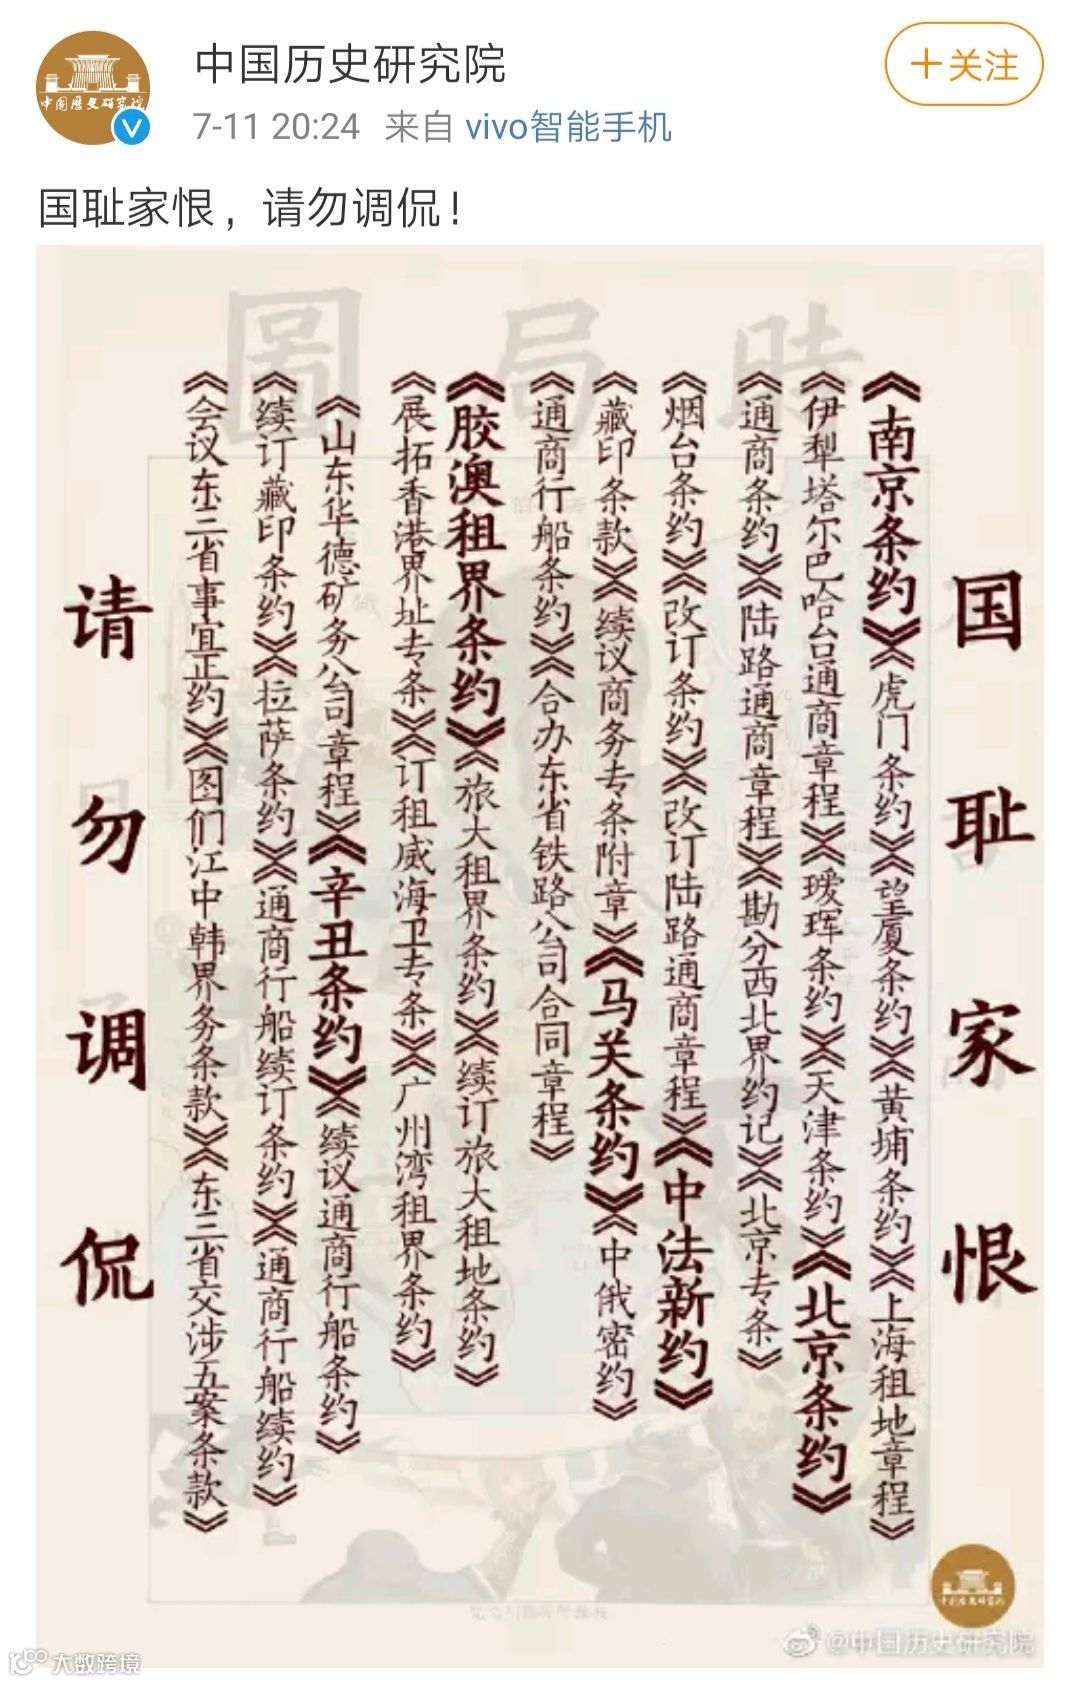 中国历史研究院
+关注
7-11 20:24 来自 vivo智能手机
国耻家恨，请勿调侃！
時局圖
国耻家恨
《南京条约》《虎门条约》《望厦条约》《黄埔条约》《上海租地章程》
《伊犁塔尔巴哈台通商章程》《瑷珲条约》《天津条约》《北京条约》
《通商条约》《陆路通商章程》《勘分西北界约记》《北京专条》
《烟台条约》《改订条约》《改订陆路通商章程》《中法新约》
《藏印条款》《续议商务专条附章》《马关条约》《中俄密约》
《通商行船条约》《合办东省铁路公司合同章程》
《胶澳租界条约》《旅大租界条约》《续订旅大租地条约》
《展拓香港界址专条》《订租威海卫专条》《广州湾租界条约》
《山东华德矿务公司章程》《辛丑条约》《续议通商行船条约》
《续订藏印条约》《拉萨条约》《通商行船续订条约》《通商行船续约》
《会议东三省事宜正约》《图们江中韩界务条款》《东三省交涉五案条款》
请勿调侃
中国历史研究院
@中国历史研究院
大数跨境